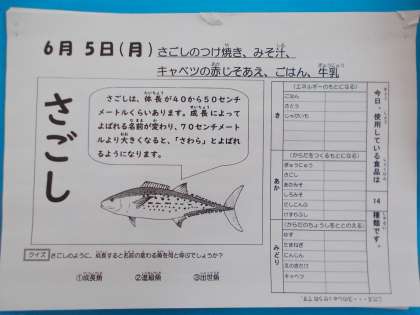 6月 5日(月) さごしのつけ焼き、みそ汁、
キャベツの赤じそあえ、ごはん、牛乳
さごし
さごしは、体長が40から50センチ
メートルくらいあります。成長によって
よばれる名前が変わり、70センチメート
ルより大きくなると、「さわら」とよばれ
るようになります。
クイズ さごしのように、成長すると名前の変わる魚を何と呼ぶでしょうか?
①成長魚 ②進級魚 ③出世魚
今日、使用している食品は 14 種類です。
き
(エネルギーのもとになる)
ごはん
さとう
じゃがいも
あか
(からだをつくるもとになる)
ぎゅうにゅう
さごし
あかみそ
しろみそ
だしこんぶ
けずりぶし
みどり
(からだのちょうしをととのえる)
ゆず
たまねぎ
にんじん
キャベツ